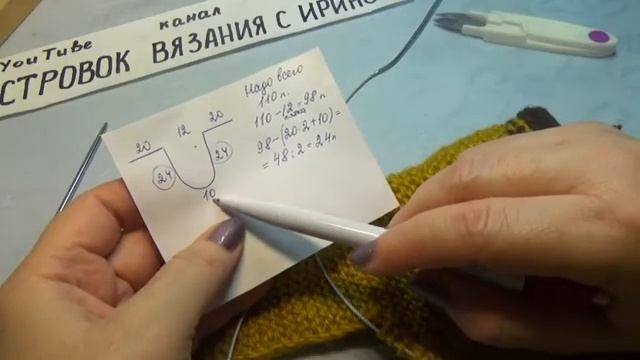 YouTube канал
СТРОВОК ВЯЗАНИЯ С ИРИНО
Надо всего
110 п.
110-12=98п
98-(20·2+10)=
=48:2=24п
20
12
20
24
24
10